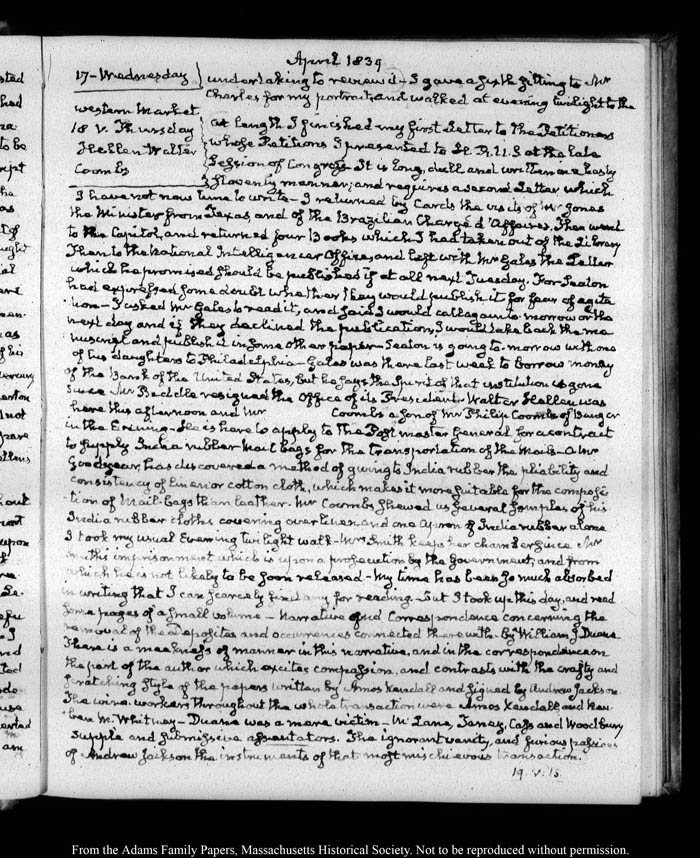 April 1839
17 - Wednesday
undertaking to review it - I gave a sixth sitting to Mr
Charles for my portrait, and walked at evening twilight to the
Western Market.
18 V. Thursday
Hellen Walter
Coombs
At length I finished my first Letter to the Petitioners
whose Petitions I presented to H. R. U.S at the late
Session of Congress. It is long, dull and written in a hasty
slovenly manner; and requires a second Letter which
I have not now time to write - I returned by Cards the visits of Mr Jones
the Minister from Texas, and of the Brazilian Chargé d'Affaires. Then went
to the Capitol, and returned four Books which I had taken out of the Library
Then to the National Intelligencer Office, and left with Mr Gales the Letter
which he promised should be published if at all next Tuesday. For Seaton
had expressed some doubt whether they would publish it for fear of agita
tion - I asked Mr Gales to read it, and said I would call again to-morrow or the
next day and if they declined the publication, I would take back the ma
nuscript and publish it in some other paper - Seaton is going to-morrow with one
of his daughters to Philadelphia - Gales was there last week to borrow money
of the Bank of the United States, but he says the Spirit of that institution is gone
since Mr Biddle resigned the Office of its President. Walter Hellen was
here this afternoon and Mr Coombs a son of Mr Philip Coombs of Bangor
in the Evening - He is here to apply to the Post master General for a contract
to supply India rubber Mail bags for the transportation of the Mails - A Mr
Goodyear, has discovered a method of giving to India rubber the pliability and
consistency of linen or cotton cloth, which makes it more suitable for the composi
tion of Mail-bags than leather. Mr Coombs shewed us several samples of his
India rubber cloths covering over linen, and one apron of India rubber alone
I took my usual Evening twilight walk - Mrs Smith keeps her chamber since Mr
Smith's imprisonment which is upon a prosecution by the Government, and from
which he is not likely to be soon released - My time has been so much absorbed
in writing that I can scarcely find any for reading. But I took up this day, and read
some pages of a small volume - Narrative and Correspondence concerning the
removal of the Deposites and occurrences connected therewith - by William J Duane
There is a meekness of manner in this narrative, and in the correspondence on
the part of the author which excites compassion, and contrasts with the crafty and
scratching style of the papers written by Amos Kendall and signed by Andrew Jackson
The wire-workers throughout the whole transaction were Amos Kendall, and Reu-
ben M. Whitney - Duane was a mere victim - McLane, Taney, Cass and Woodbury
supple and submissive assentators. The ignorant vanity, and furious passions
of Andrew Jackson the instruments of that most mischievous transaction.
19. V. 15
From the Adams Family Papers, Massachusetts Historical Society. Not to be reproduced without permission.